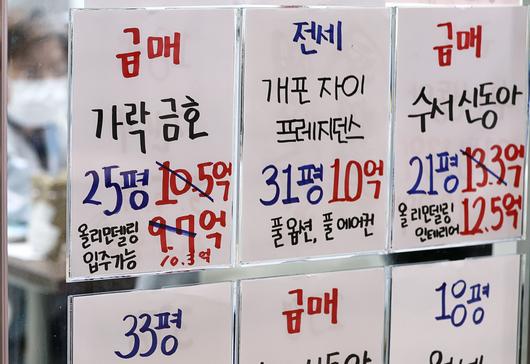 급매
가락 금호
25평 10.5억
올리모델링 9.7억
입주가능 10.3억
전세
개포 자이
프레지던스
31평 10억
풀옵션, 풀에어컨
급매
수서 신동아
21평 13.3억
올리모델링 12.5억
인테리어
33평
급매
18평